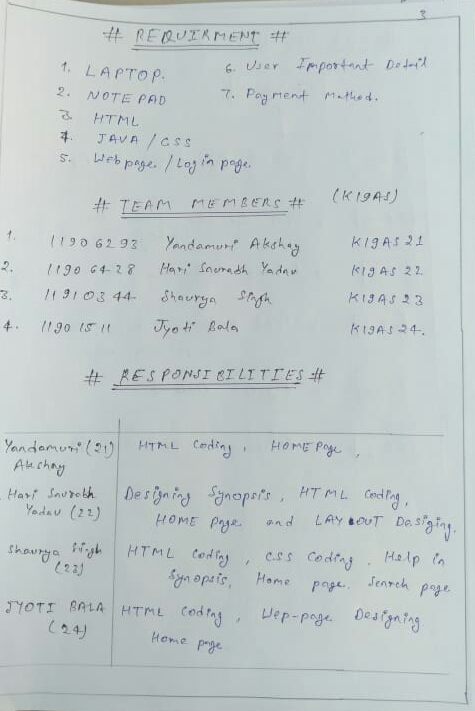 3
# REQUIRMENT #
1. LAPTOP.
2. NOTE PAD
3. HTML
4. JAVA / CSS
5. Web page / Log in page.
6. User Important Detail
7. Payment Method.
# TEAM MEMBERS # (K19AS)
1. 11906293 Yandamuri Akshay K19AS21
2. 11906428 Hari Saurabh Yadav K19AS 22
3. 11910344 Shaurya Singh K19AS23
4. 11901511 Jyoti Bala K19AS24.
# RESPONSIBILITIES #
Yandamuri (21)
Akshay
HTML Coding, HOME Page,
Hari Saurabh
Yadav (22)
Designing Synopsis, HTML Coding,
HOME Page and LAYOUT Dasiging.
Shaurya Singh
(23)
HTML Coding, CSS Coding, Help in
Synopsis, Home page. Search page
JYOTI BALA
(24)
HTML Coding, Wep-page Designing
Home page.